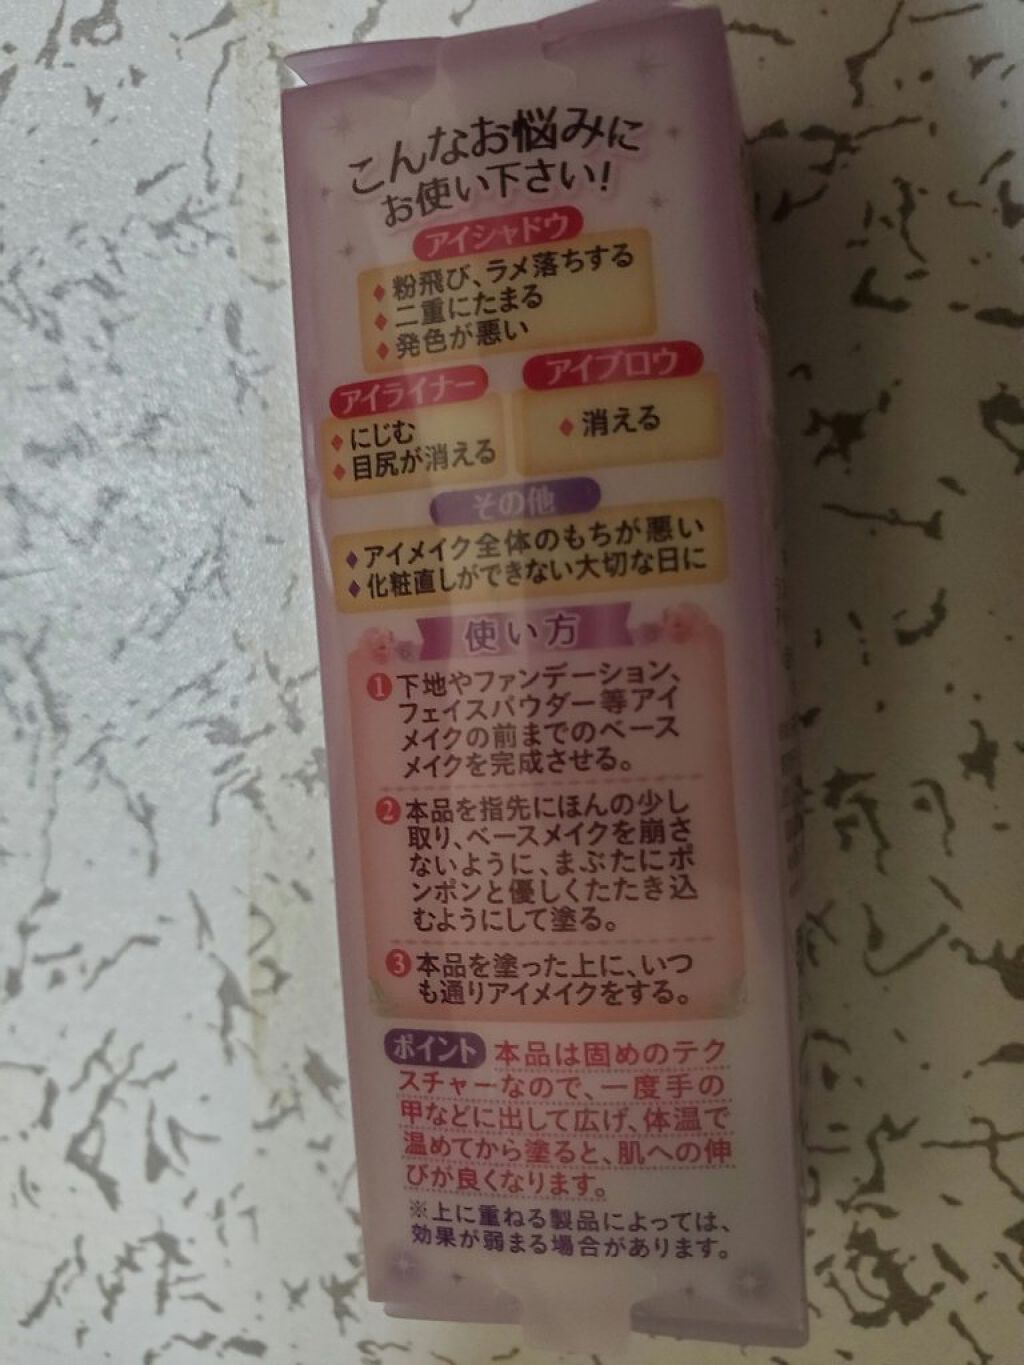 こんなお悩みに
お使い下さい!
アイシャドウ
♦粉飛び、ラメ落ちする
♦二重にたまる
♦発色が悪い
アイライナー
♦にじむ
♦目尻が消える
アイブロウ
♦消える
その他
♦アイメイク全体のもちが悪い
♦化粧直しができない大切な日に
使い方
❶下地やファンデーション、
フェイスパウダー等アイ
メイクの前までのベース
メイクを完成させる。
❷本品を指先にほんの少し
取り、ベースメイクを崩さ
ないように、まぶたにポ
ンポンと優しくたたき込
むようにして塗る。
❸本品を塗った上に、いつ
も通りアイメイクをする。
ポイント 本品は固めのテク
スチャーなので、一度手の
甲などに出して広げ、体温で
温めてから塗ると、肌への伸
びが良くなります。
※上に重ねる製品によっては、
効果が弱まる場合があります。